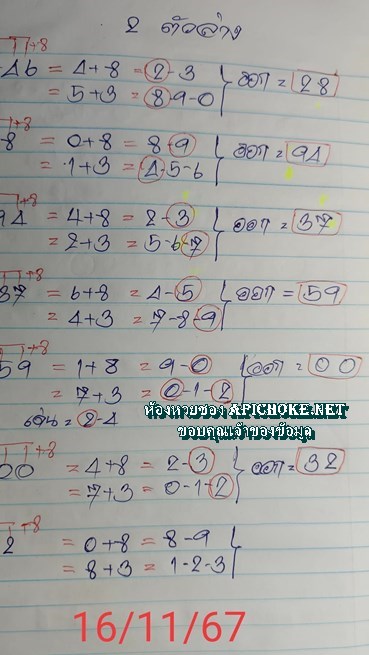 2 ตัวล่าง
+8
46 = 4+8 = 2-3
= 5+3 = 8-9-0 ออก = 28
+8
8 = 0+8 = 8-9
= 1+3 = 4-5-6 ออก = 94
+8
94 = 4+8 = 2-3
= 2+3 = 5-6-7 ออก = 37
+8
37 = 6+8 = 4-5
= 4+3 = 7-8-9 ออก = 59
+8
59 = 1+8 = 9-0
= 7+3 = 0-1-2 ออก = 00
เด่น = 2-4
ห้องหวยซอง APICHOKE.NET
ขอบคุณเจ้าของข้อมูล
+8
00 = 4+8 = 2-3
= 7+3 = 0-1-2 ออก = 32
+8
2 = 0+8 = 8-9
= 8+3 = 1-2-3
16/11/67